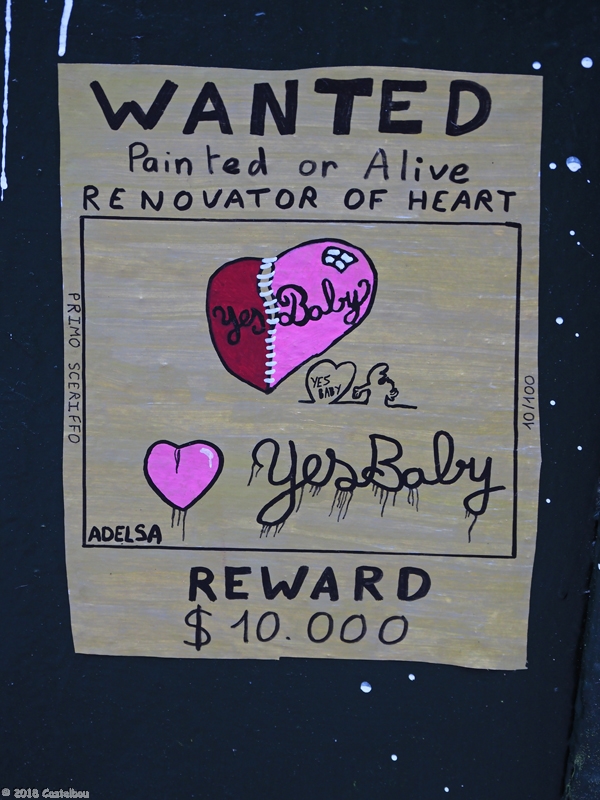 WANTED
Painted or Alive
RENOVATOR OF HEART
PRIMO SCERIFFO
YesBaby
YES
BABY
10/100
YesBaby
ADELSA
REWARD
$ 10.000
© 2018 Castelbou